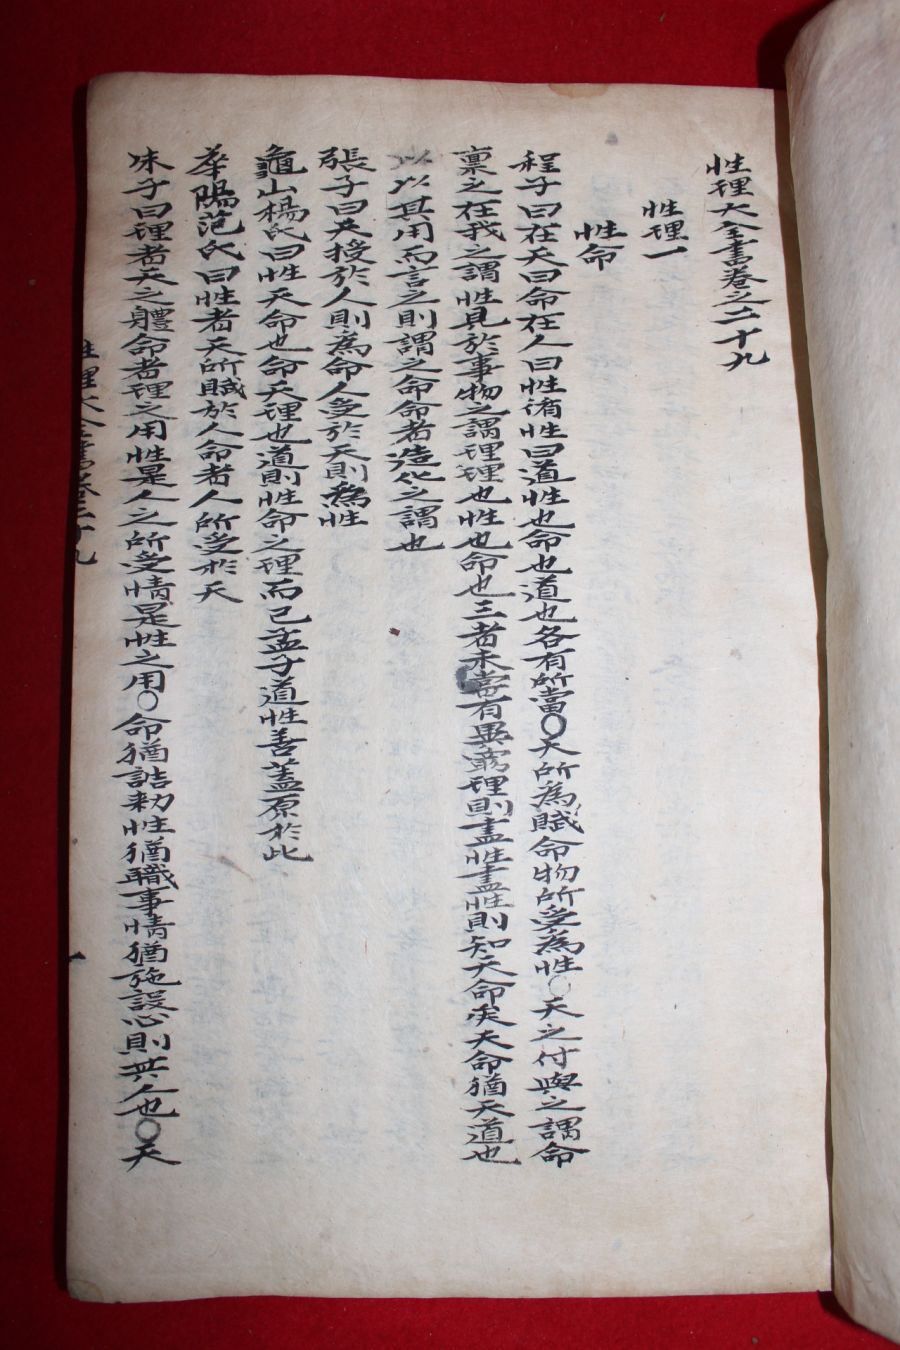 性理大全書卷之二十九
性理一
性命
程子曰在天曰命在人曰性循性曰道性也命也道也各有所當○天所為賦命物所受為性○天之付與之謂命
稟之在我之謂性見於事物之謂理理也性也命也三者未嘗有異窮理則盡性盡性則知天命矣天命猶天道也
以以其用而言之則謂之命命者造化之謂也
張子曰天授於人則為命人受於天則為性
龜山楊氏曰性天命也命天理也道則性命之理而已孟子道性善蓋原於此
華陽范氏曰性者天所賦於人命者人所受於天
朱子曰理者天之體命者理之用性是人之所受情是性之用○命猶誥勑性猶職事情猶施設心則其人也○天
性理大全書卷二十九